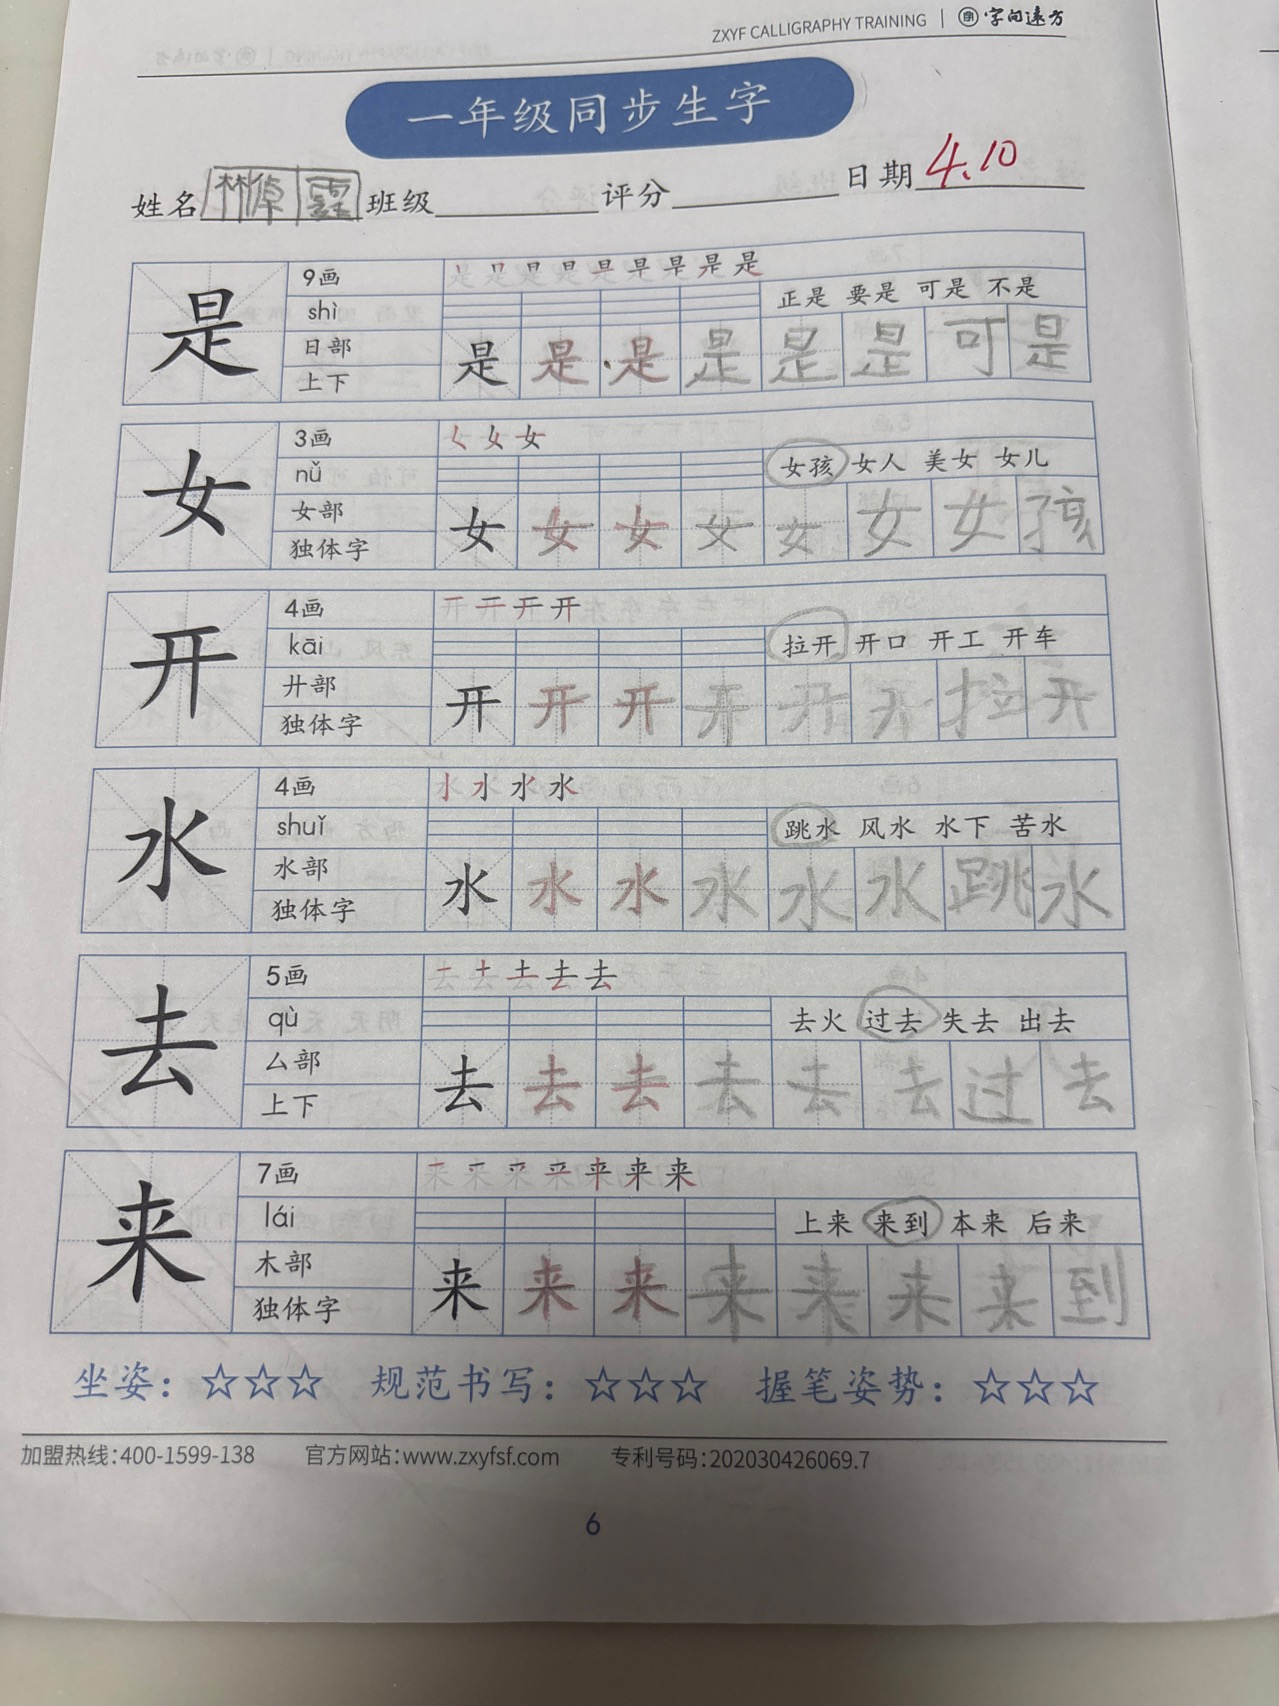 ZXYF CALLIGRAPHY TRAINING | 字问远方
一年级同步生字
姓名 林倬霆 班级 评分 日期 4.10
是 9画 是
shì 正是 要是 可是 不是
日部 是 是 是 是 是 是 可 是
上下
女 3画 女 女
nǚ 女孩 女人 美女 女儿
女部 女 女 女 女 女 女 女 孩
独体字
开 4画 开 开
kāi 拉开 开口 开工 开车
廾部 开 开 开 开 开 开 拉 开
独体字
水 4画 水 水 水
shuǐ 跳水 风水 水下 苦水
水部 水 水 水 水 水 水 跳 水
独体字
去 5画 去 去
qù 去火 过去 失去 出去
厶部 去 去 去 去 去 去 过 去
上下
来 7画 来 来
lái 上来 来到 本来 后来
木部 来 来 来 来 来 来 来 到
独体字
坐姿：☆☆☆ 规范书写：☆☆☆ 握笔姿势：☆☆☆
加盟热线：400-1599-138 官方网站：www.zxyfsf.com 专利号码：202030426069.7
6